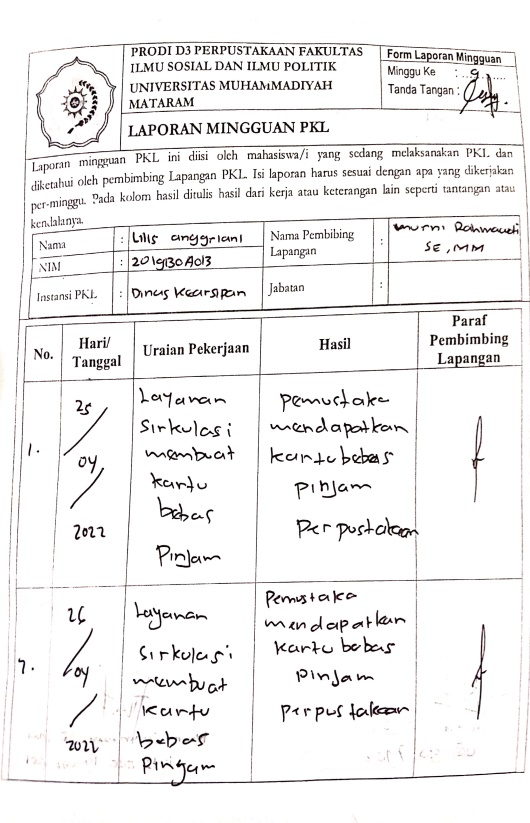 PRODI D3 PERPUSTAKAAN FAKULTAS
ILMU SOSIAL DAN ILMU POLITIK
UNIVERSITAS MUHAMMADIYAH
MATARAM
LAPORAN MINGGUAN PKL
Form Laporan Mingguan
Minggu Ke : 9
Tanda Tangan :
Laporan mingguan PKL ini diisi oleh mahasiswa/i yang sedang melaksanakan PKL dan
diketahui oleh pembimbing Lapangan PKL. Isi laporan harus sesuai dengan apa yang dikerjakan
per-minggu. Pada kolom hasil ditulis hasil dari kerja atau keterangan lain seperti tantangan atau
kendalanya.
Nama : Lilis anggriani
NIM : 2019B0A013
Instansi PKL : Dinas Kearsipan
Nama Pembibing
Lapangan : Murni Rahmawati
SE, MM
Jabatan :
No. Hari/ Tanggal Uraian Pekerjaan Hasil Paraf Pembimbing Lapangan
1. 25/04/2022
Layanan
Sirkulasi
membuat
kartu
bebas
Pinjam
Pemustaka
mendapatkan
kartu bebas
pinjam
Perpustakaan
26/04/2022
Layanan
Sirkulasi
membuat
kartu
bebas
Pingam
Pemustaka
mendapatkan
kartu bebas
pinjam
Perpustakaan